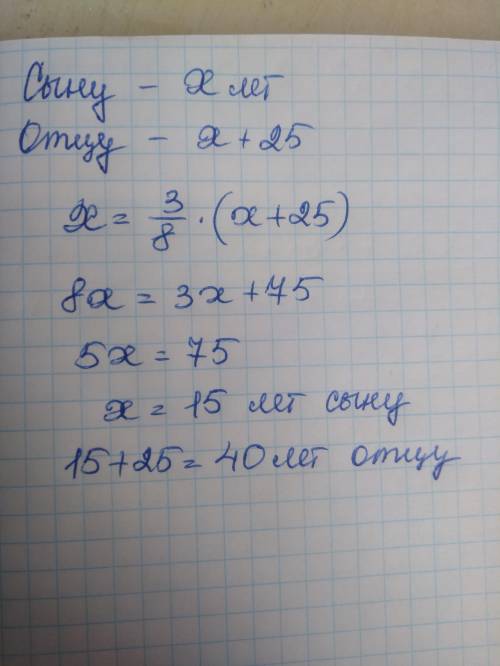 Сыну - x лет
Отцу - x + 25
x = 3/8 · (x + 25)
8x = 3x + 75
5x = 75
x = 15 лет сыну
15 + 25 = 40 лет отцу